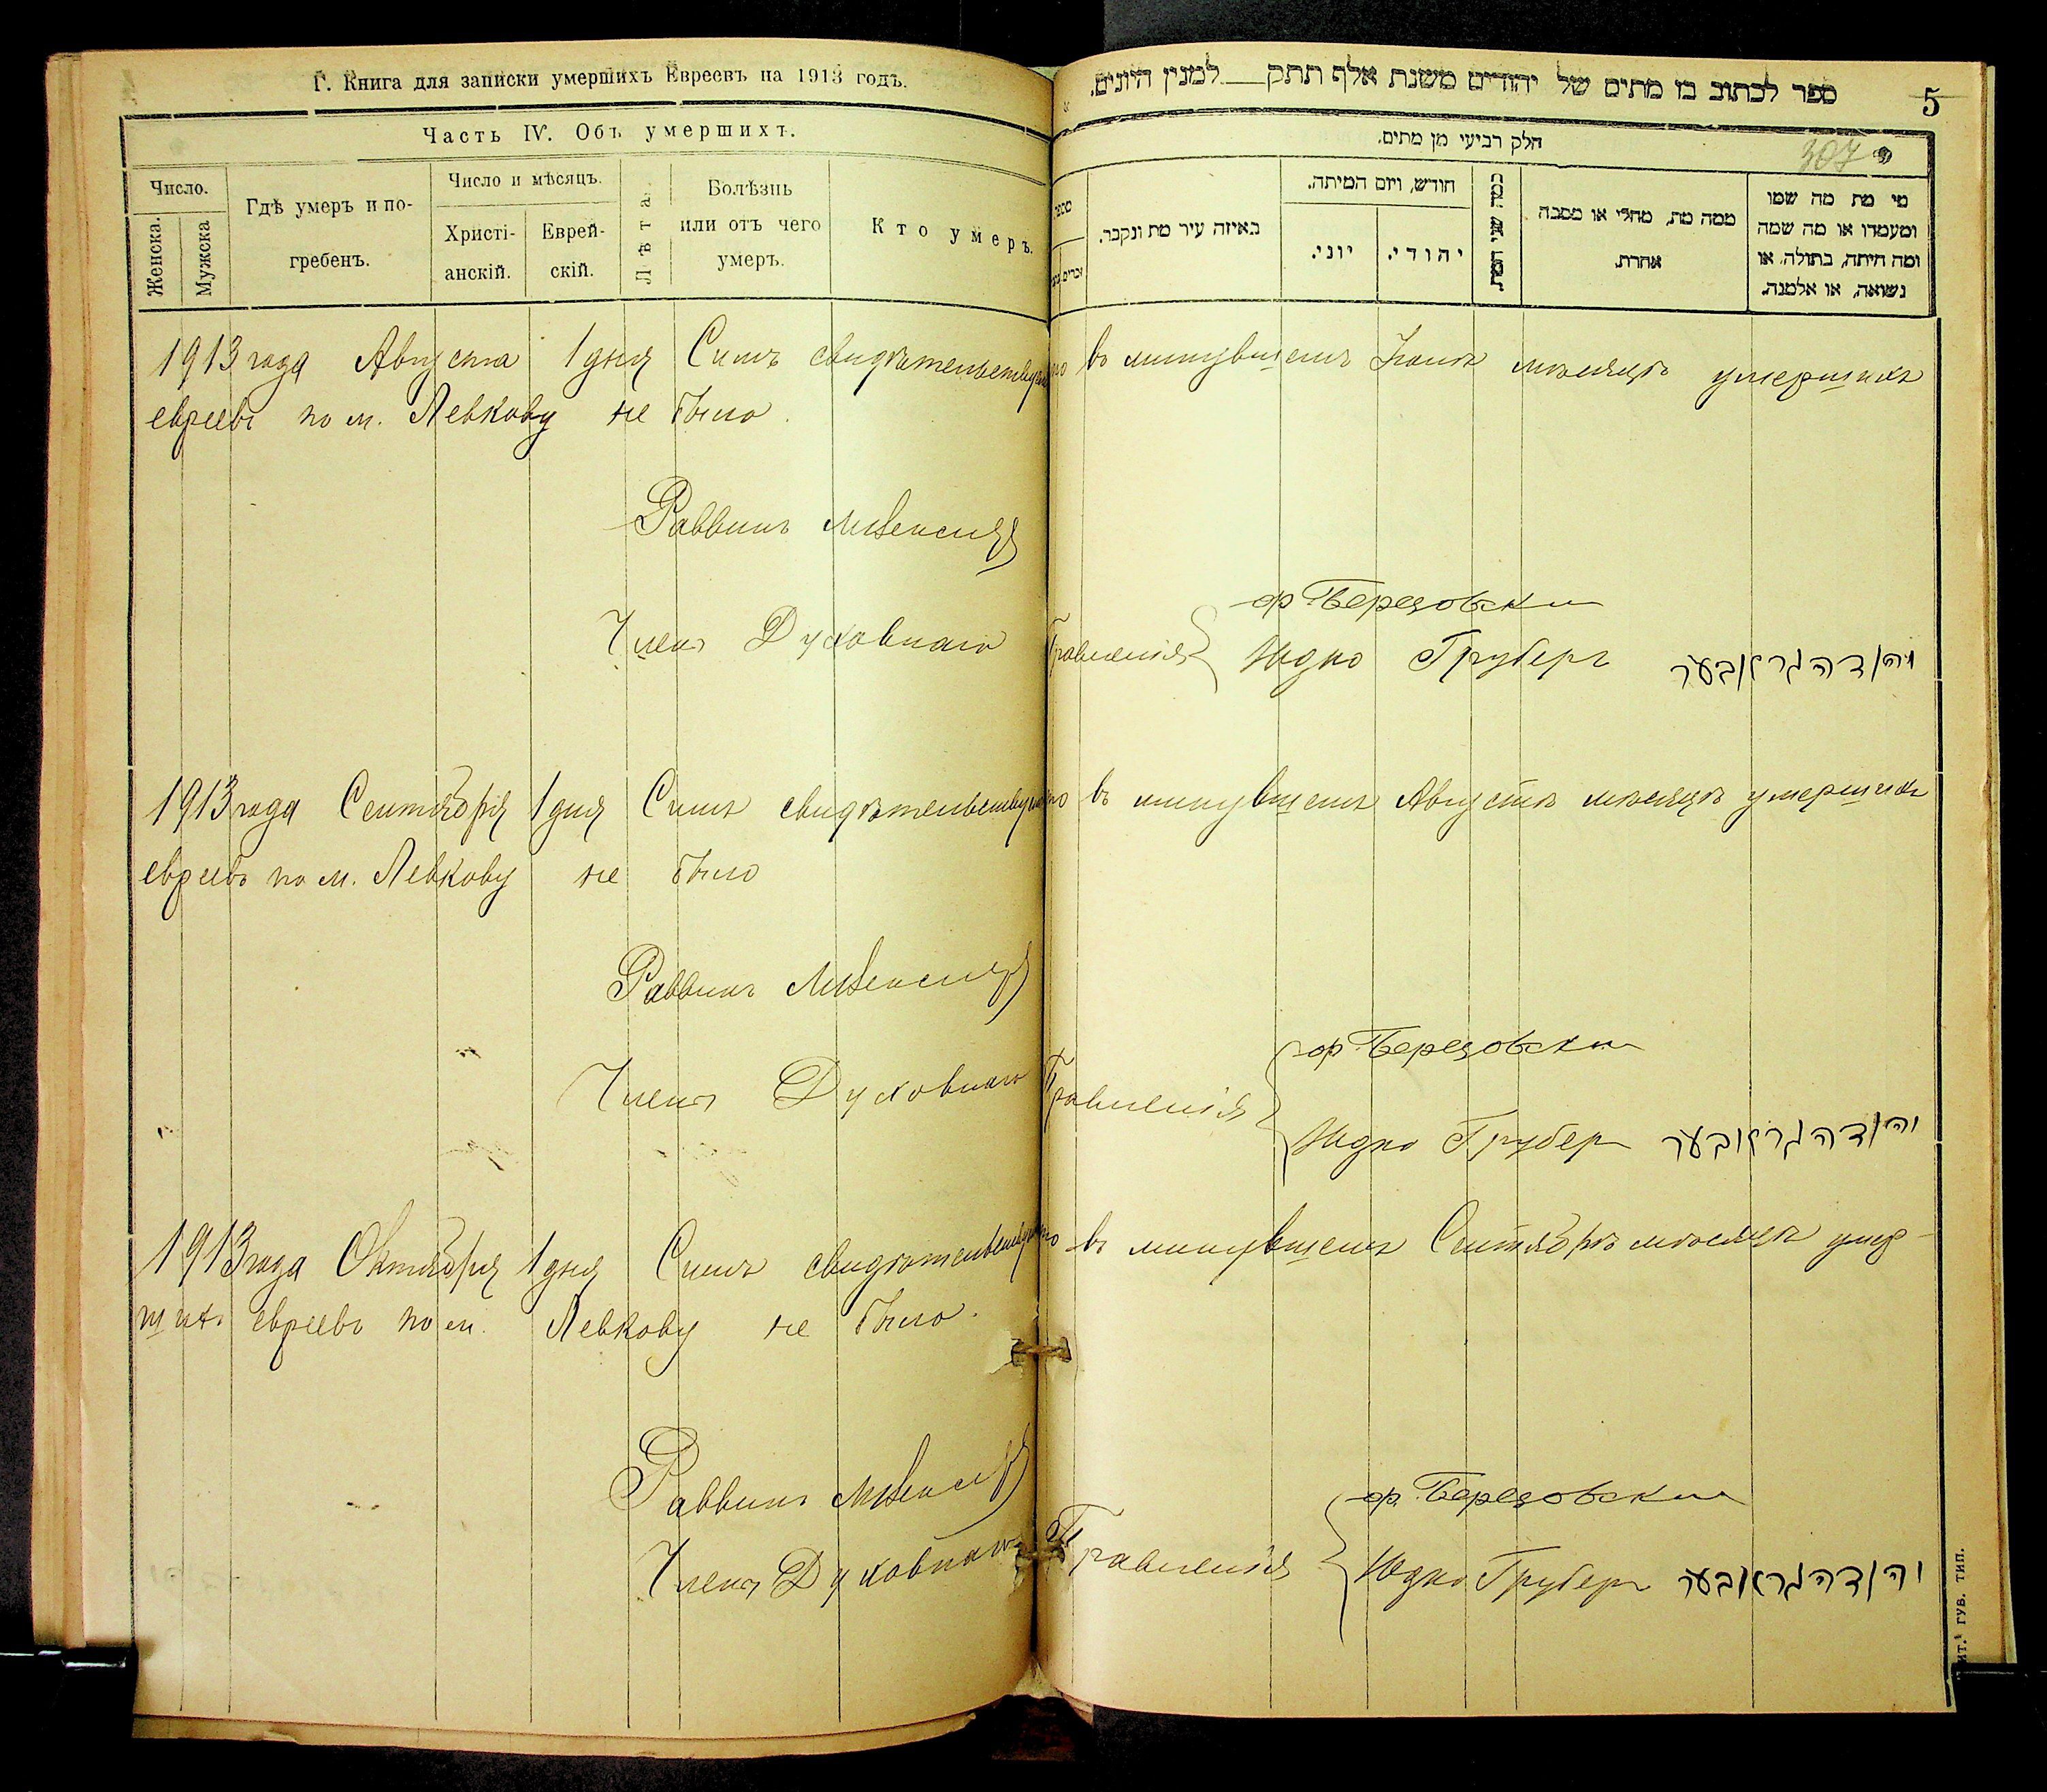 Г. Книга для записки умершихъ Евреевъ на 1913 годъ.
Часть IV. Объ умершихъ.
Число.
Женска.
Мужска
Гдѣ умеръ и по-
гребенъ.
Число и мѣсяцъ.
Христі-
анскій.
Еврей-
скій.
Лѣта.
Болѣзнь
или отъ чего
умеръ.
Кто умеръ.
ספר לכתוב בו מתים של יהודים משנת אלף תתק___למנין היונים.
5
חלק רביעי מן מתים.
307
מספר
באיזה עיר מת ונקבר.
חודש, ויום המיתה.
יוני.
יהודי.
כמה שני המת.
ממה מת, מחלי או מסבה
אחרת.
מי מת מה שמו
ומעמדו או מה שמה
ומה היתה, בתולה, או
נשואה, או אלמנה.
1913 года Августа 1 дня Симъ свидѣтельствуемо въ минувшемъ Іюлѣ мѣсяцѣ умершихъ
евреевъ по м. Левкову не было.
Раввинъ
Члены Духовнаго Правленія
Ф Березовски
Юдко Груберъ יהודה גראבער
1913 года Сентября 1 дня Симъ свидѣтельствуемо въ минувшемъ Августѣ мѣсяцѣ умершихъ
евреевъ по м. Левкову не было
Раввинъ
Члены Духовнаго Правленія
Ф Березовски
Юдко Грубер יהודה גראבער
1913 года Октября 1 дня Симъ свидѣтельствуемо въ минувшемъ Сентябрѣ мѣсяцѣ умер-
шихъ евреевъ по м. Левкову не было.
Раввинъ
Члены Духовнаго Правленія
Ф. Березовски
Юдко Груберъ יהודה גראבער
ГУБ. ТИП.